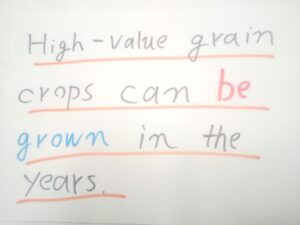 High-value grain
crops can be
grown in the
years.